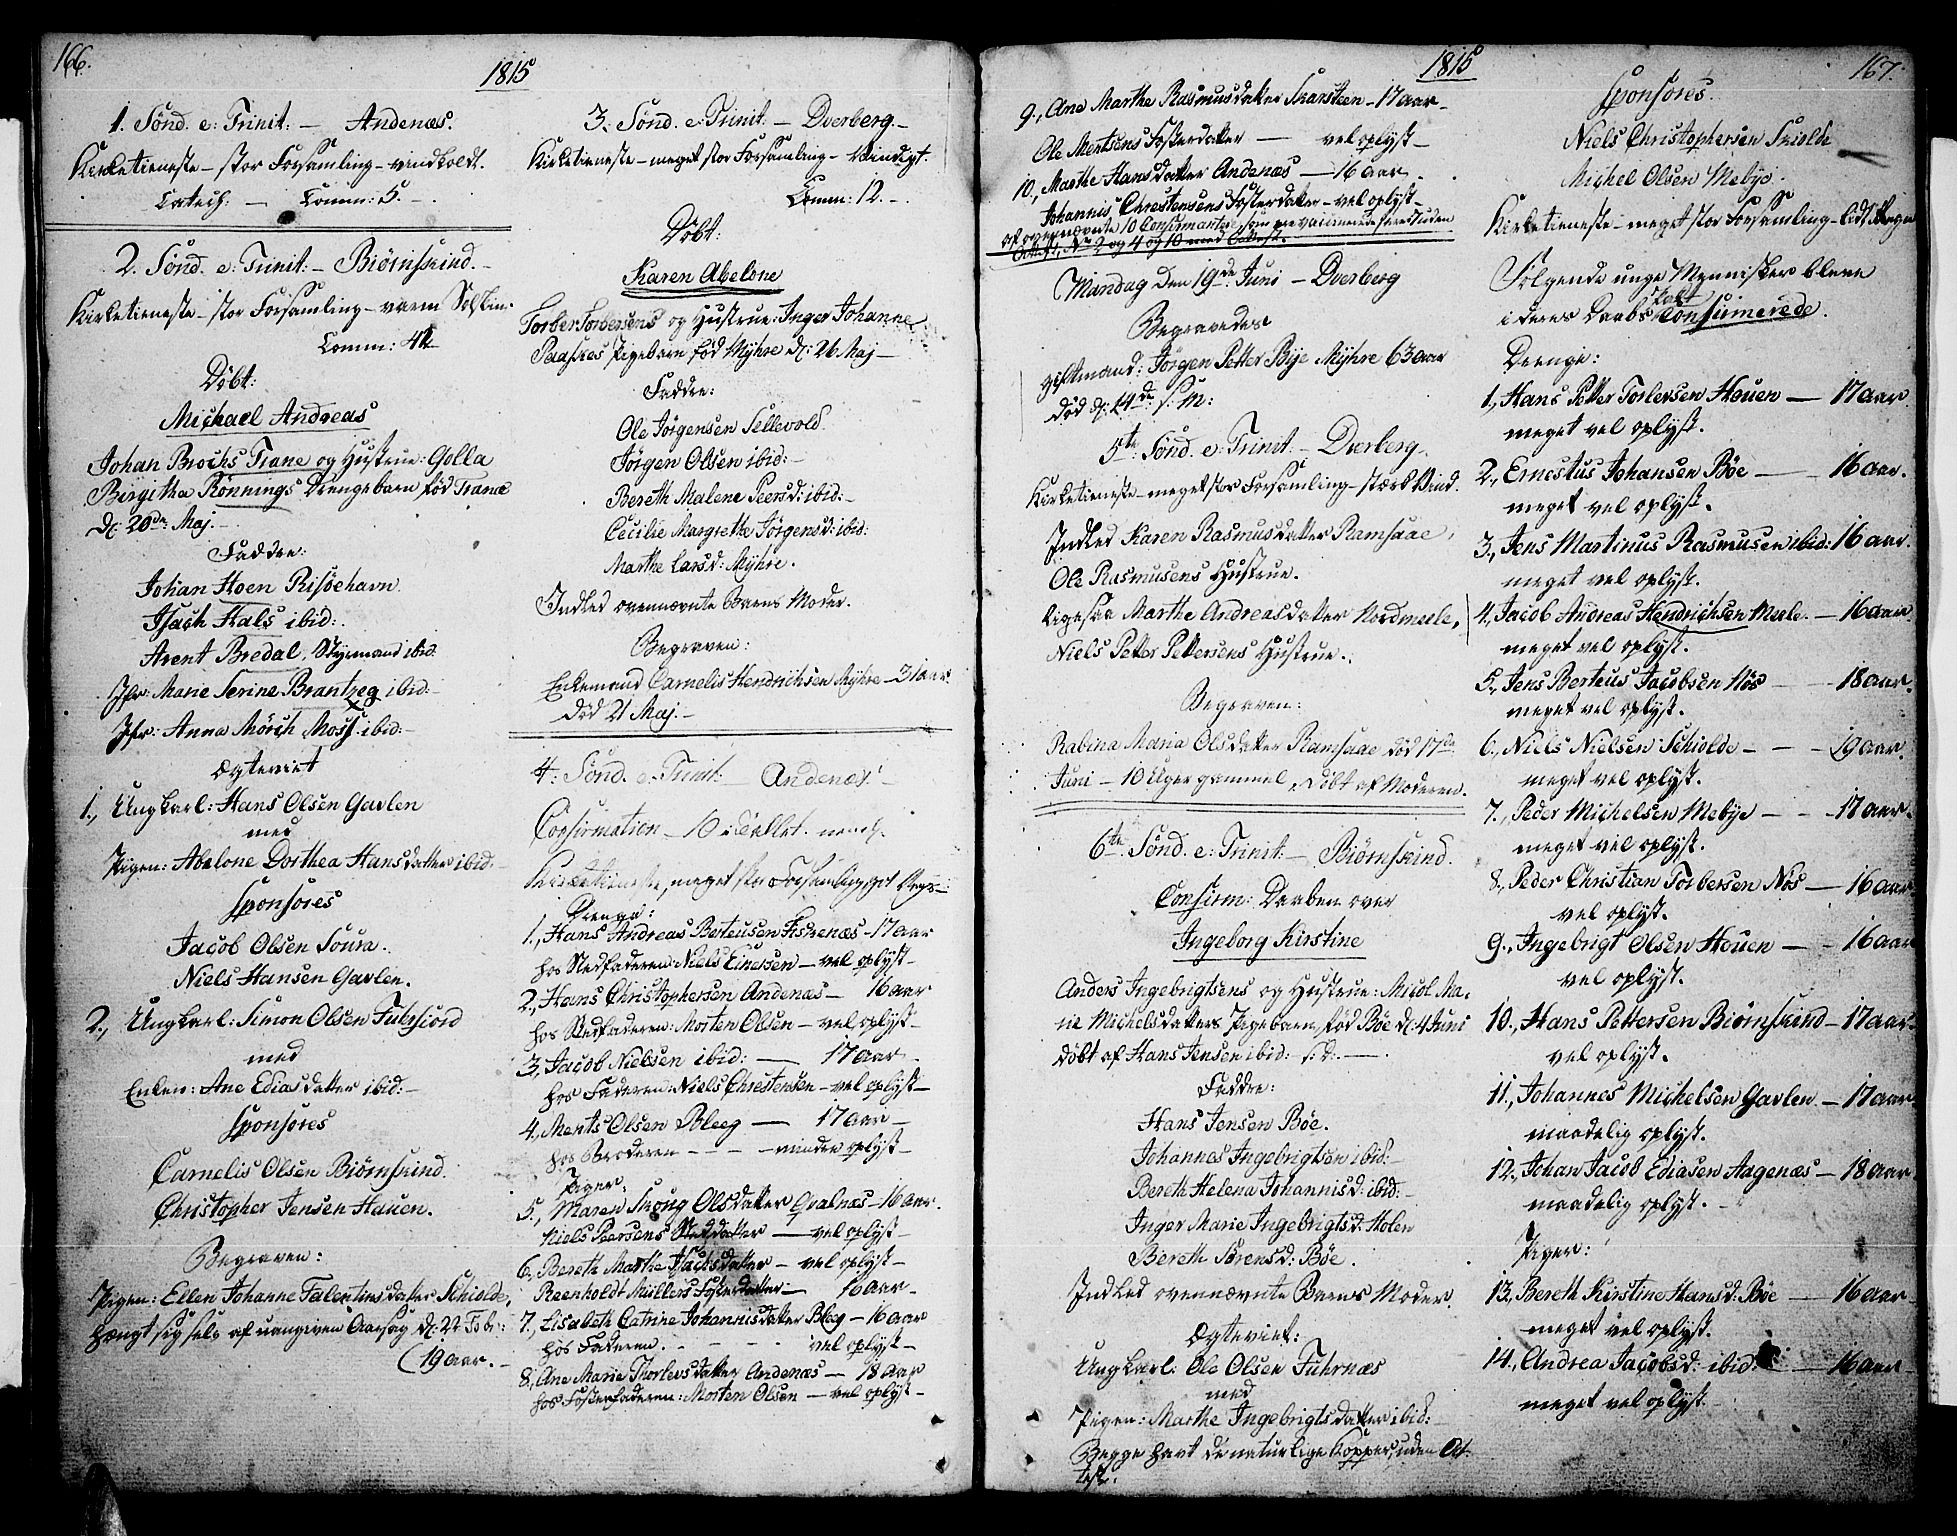 166.
1815
1. Sønd. e: Trinit: — Andenæs.
Kirketieneste – stor Forsamling – vindkoldt.
Catech: — Comm: 5. –
2. Sønd. e: Trinit: – Biørnskind. –
Kirketieneste – stor Forsamling – varm Solskin.
Comm: 42
Døbt:
Michael Andreas
Johan Brochs Trane og Hustrue: Golla
Birgitha Rønnings Drengebarn fød Tranæ
d: 20de Maj. –
Faddre:
Johan Hoen Risøehavn.
Isach Hals ibid:
Arent Bredal, Styrmand ibid.
Jfr: Marie Serine Brantzeg ibid: –
Jfr: Anna Mørch Moss. ibid: –
Ægteviet
1., Ungkarl: Hans Olsen Gavlen
med
Pigen: Abelone Dorthea Hansdatter ibid. –
Sponsores
Jacob Olsen Soura.
Niels Hansen Gavlen.
2., Ungkarl: Simon Olsen Fuhrfiord
med
Enken: Ane Ediasdatter ibid: –
Sponsores
Carnelis Olsen Biørnskind.
Christopher Jensen Hauen.
Begraven:
Pigen: Ellen Johanne Falentinsdatter Schiolde,
hængt sig selv af uangiven Aarsag d: 22 Febr:
(19 aar. –
3. Sønd. e: Trinit. – Dverberg. –
Kirketieneste – meget stor Forsamling – Vindigt.
Comm: 12. –
Døbt:
Karen Abelone
Torber Torbersens og Hustrue: Inger Johanne
Pigebarn fød Myhre d: 26 Maj –
Faddre:
Ole Jørgensen Sellevold.
Jørgen Olsen ibid: –
Bereth Malene Peersd: ibid: –
Cecilie Margrethe Jørgensd: ibid:
Marthe Larsd: Myhre.
Indled ovennævnte Barns Moder.
Begraven:
Enkemand Carnelis Hendrichsen Myhre – 31 aar.
Død 21 Maj. –
4: Sønd. e. Trinit. Andenæs
Confirmation – 10
Kirketieneste, meget stor Forsamling,
Drenge:
1., Hans Andreas Berteusen Fiskenæs – 17 aar
hos Stedfaderen: Niels Einersen – vel oplyst –
2., Hans Christophersen Andenæs – 16 aar
hos Stedfaderen: Morten Olsen – vel oplyst –
3., Jacob Nielsen ibid: — 17 aar –
hos Faderen: Niels Chrestensen – vel oplyst –
4., Ments Olsen Bleeg — 17 aar –
hos Broderen – – – – minder oplyst –
Piger:
5., Maren Snong Olsdatter Qvalnæs – 16 aar.
Niels Peersens Steddatter — vel oplyst –
6., Bereth Marthe Isachsdatter – vel oplyst –
Reenholdt Müllers Fosterdatter – 16 aar –
7., Lisabeth Catrine Johannisdatter Bleeg – 16 aar
hos Faderen. – – – vel oplyst –
8., Ane Marie Thorlevsdatter Andenæs – 18 aar
hos Fosterfaderen: Morten Olsen – vel oplyst –
1815
167.
9., Ane Marthe Rasmusdatter Skarsteen – 17 aar –
Ole Mentsens Fosterdatter — vel oplyst –
10., Marthe Hansdatter Andenæs — 16 aar.
Johannis Chrestensens Fosterdatter – vel oplyst –
af ovennævnte 10 Confirmanter, som
Attest, No 2 og 4 og 10 med Attest.
Mandag den 19de Juni – Dverberg
Begravedes
giftmand: Jørgen Petter Bye Myhre 63 aar
død d: 14de s: M:
5te Sønd. e: Trinit: – Dverberg.
Kirketieneste – meget stor Forsamling – stærk Vind.
Indled Karen Rasmusdatter Ramsaae,
Ole Rasmusens Hustrue.
ligesaa Marthe Andreasdatter Nordmeele,
Niels Petter Pettersens Hustrue.
Begraven:
Rabina Maria Olsdatter Ramsaae død 17de
Juni – 10 Uger gammel, døbt af Moderen.
6te Sønd. e: Trinit – Biørnskind.
Confirm: Daaben over
Ingeborg Kirstine
Anders Ingebrigtsens og Hustrue: Micol Ma-
rie Michelsdatters Pigebarn, fød Bøe d: 4 Juni
døbt af Hans Jensen ibid: s: d: —
Faddre:
Hans Jensen Bøe.
Johannes Ingebrigtsen ibid: –
Bereth Helena Johannisd: ibid: –
Inger Marie Ingebrigtsd: Holen
Bereth Sørensd: Bøe.
Indled ovennævnte Barns Moder.
Ægteviet:
Ungkarl: Ole Olsen Fuhrnæs
med
Pigen: Marthe Ingebrigtsdatter ibid: –
Begge havt de naturlige Kopper, uden At-
test.
Sponsores.
Niels Christophersen Skiolde
Michel Olsen Mebye.
Kirketieneste – meget stor Forsamling – lidt Regn
Følgende unge Mennesker bleve
i deres Daabs Pakt Confirmerede.
Drenge:
1., Hans Petter Torlevsen Houen — 17 aar.
meget vel oplyst.
2., Ernestus Johansen Bøe — 16 aar.
meget vel oplyst.
3., Jens Martinus Rasmusen ibid: 16 aar.
meget vel oplyst.
4., Jacob Andreas Hendrichsen Meele. – 16 aar
meget vel oplyst.
5., Jens Berteus Jacobsen Nøs — 18 aar.
meget vel oplyst.
6., Niels Nielsen Schiolde – – – 19 aar.
meget vel oplyst.
7., Peder Michelsen Mebye – – – 17 aar.
meget vel oplyst.
8., Peder Christian Torbersen Nøs — 16 aar
vel oplyst.
9., Ingebrigt Olsen Houen — – 16 aar
vel oplyst.
10., Hans Pettersen Biørnskind – 17 aar.
vel oplyst.
11., Johannes Michelsen Gavlen. – 17 aar
maadelig oplyst.
12., Johan Jacob Ediasen Aagenæs – 18 aar.
maadelig oplyst. –
Piger:
13., Bereth Kirstine Hansd: Bøe — 16 aar
meget vel oplyst.
14., Andrea Jacobsd: ibid: — 16 aar
meget vel oplyst.